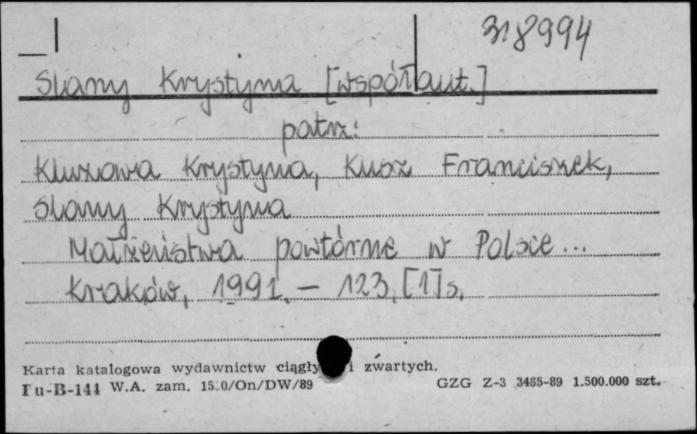 318994
Slany Krystyna [współaut.]
patrz:
Kluzowa Krystyna, Kusz Franciszek,
Slany Krystyna
Małżeństwa powtórne w Polsce...
Kraków, 1991. – 123, [1] s.
Karta katalogowa wydawnictw ciągły i zwartych.
Pu-B-144 W.A. zam. 15.0/On/DW/89 GZG Z-3 3465-89 1.500.000 szt.